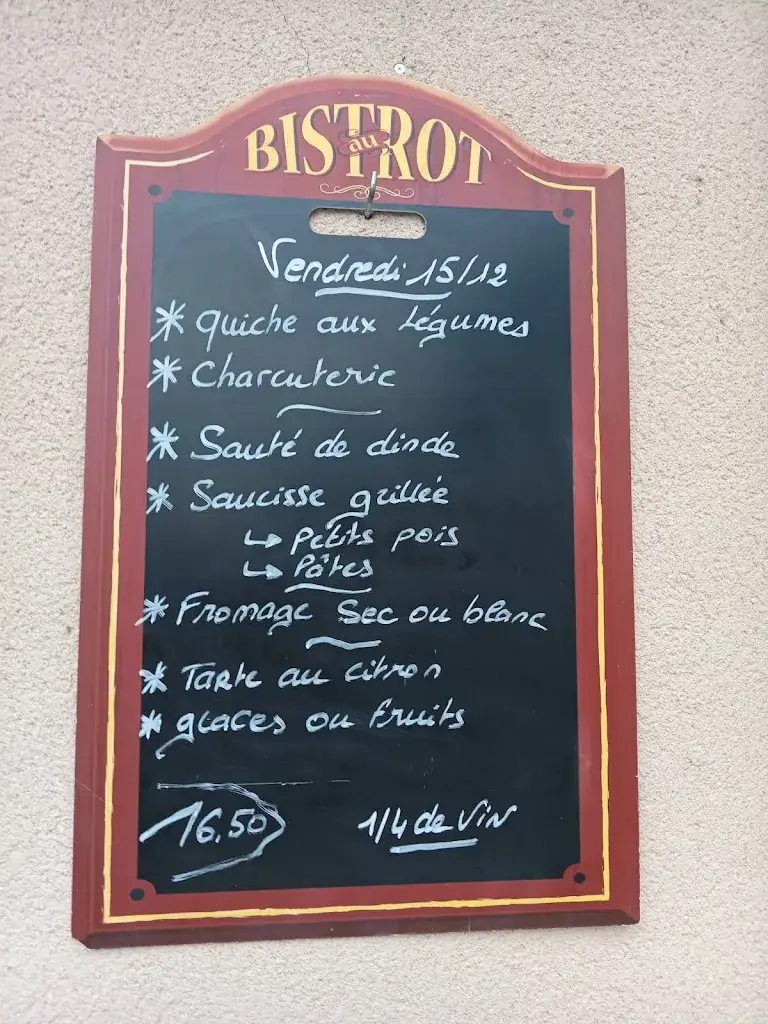 BISTROT
au
Vendredi 15/12
* Quiche aux Légumes
* Charcuterie
* Sauté de dinde
* Saucisse grillée
↳ Petits pois
↳ Pâtes
* Fromage Sec ou blanc
* Tarte au Citron
* glaces ou fruits
16.50 1/4 de Vin